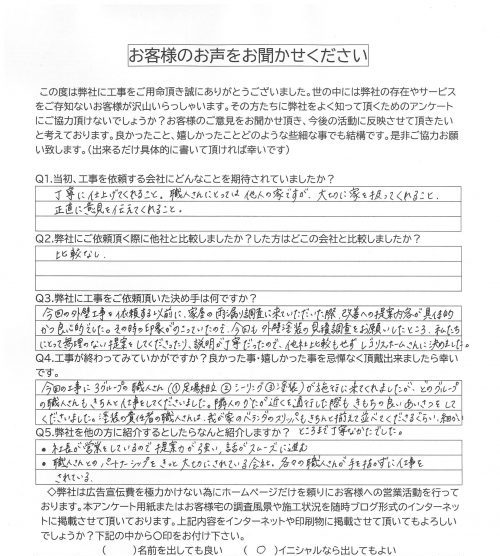 お客様のお声をお聞かせください
この度は弊社に工事をご用命頂き誠にありがとうございました。世の中には弊社の存在やサービス
をご存知ないお客様が沢山いらっしゃいます。その方たちに弊社をよく知って頂くためのアンケート
にご協力頂けないでしょうか？お客様のご意見をお聞かせ頂き、今後の活動に反映させて頂きたい
と考えております。良かったこと、嬉しかったことどのような些細な事でも結構です。是非ご協力お願
い致します。（出来るだけ具体的に書いて頂ければ幸いです）
Q1.当初、工事を依頼する会社にどんなことを期待されていましたか？
丁寧に仕上げてくれること。職人さんにとっては他人の家ですが、大切に家を扱ってくれること。
正直に意見を伝えてくれること。
Q2.弊社にご依頼頂く際に他社と比較しましたか？した方はどこの会社と比較しましたか？
比較なし。
Q3.弊社に工事をご依頼頂いた決め手は何ですか？
今回の外壁工事を依頼する以前に、家屋の雨漏り調査に来ていただいた際、改善への提案内容が具体的
かつ良心的でした。その時の印象がのこっていたので、今回も外壁塗装の見積調査をお願いしたところ、私たち
にとって無理のない提案をしてくださったり、説明が丁寧だったので、他社と比較もせず 
Q4.工事が終わってみていかがですか？良かった事・嬉しかった事を忌憚なく頂戴出来ましたら幸い
です。
今回の工事に3グループの職人さん（①足場組立 ②シーリング ③塗装）が各 に来てくれましたが、どのグループ
の職人さんもきちんと仕事をしてくださいました。隣人のかたが近くを通行した際も きもちの良いあいさつをして
くださいました。塗装の責任者の職人さんは、我が家のベランダのスリッパもきちんと揃えて並べてくださるぐらい、細かい
ところまで丁寧なかたでした。
Q5.弊社を他の方に紹介するとしたらなんと紹介しますか？
・社長が営業をしているので提案力が強い、話がスムーズに進む
・職人さんとの、パートナーシップをきっと大切にされている会社。各々の職人さんが手を抜かずに仕事を
されている。
◇弊社は広告宣伝費を極力かけない為にホームページだけを頼りにお客様への営業活動を行って
おります。本アンケート用紙またはお客様宅の調査風景や施工状況を随時ブログ形式のインターネッ
トに掲載させて頂いております。上記内容をインターネットや印刷物に掲載させて頂いてもよろしい
でしょうか？下記の中から〇印をお付け下さい。
（　　）名前を出しても良い　（ ○ ）イニシャルなら出してもよい